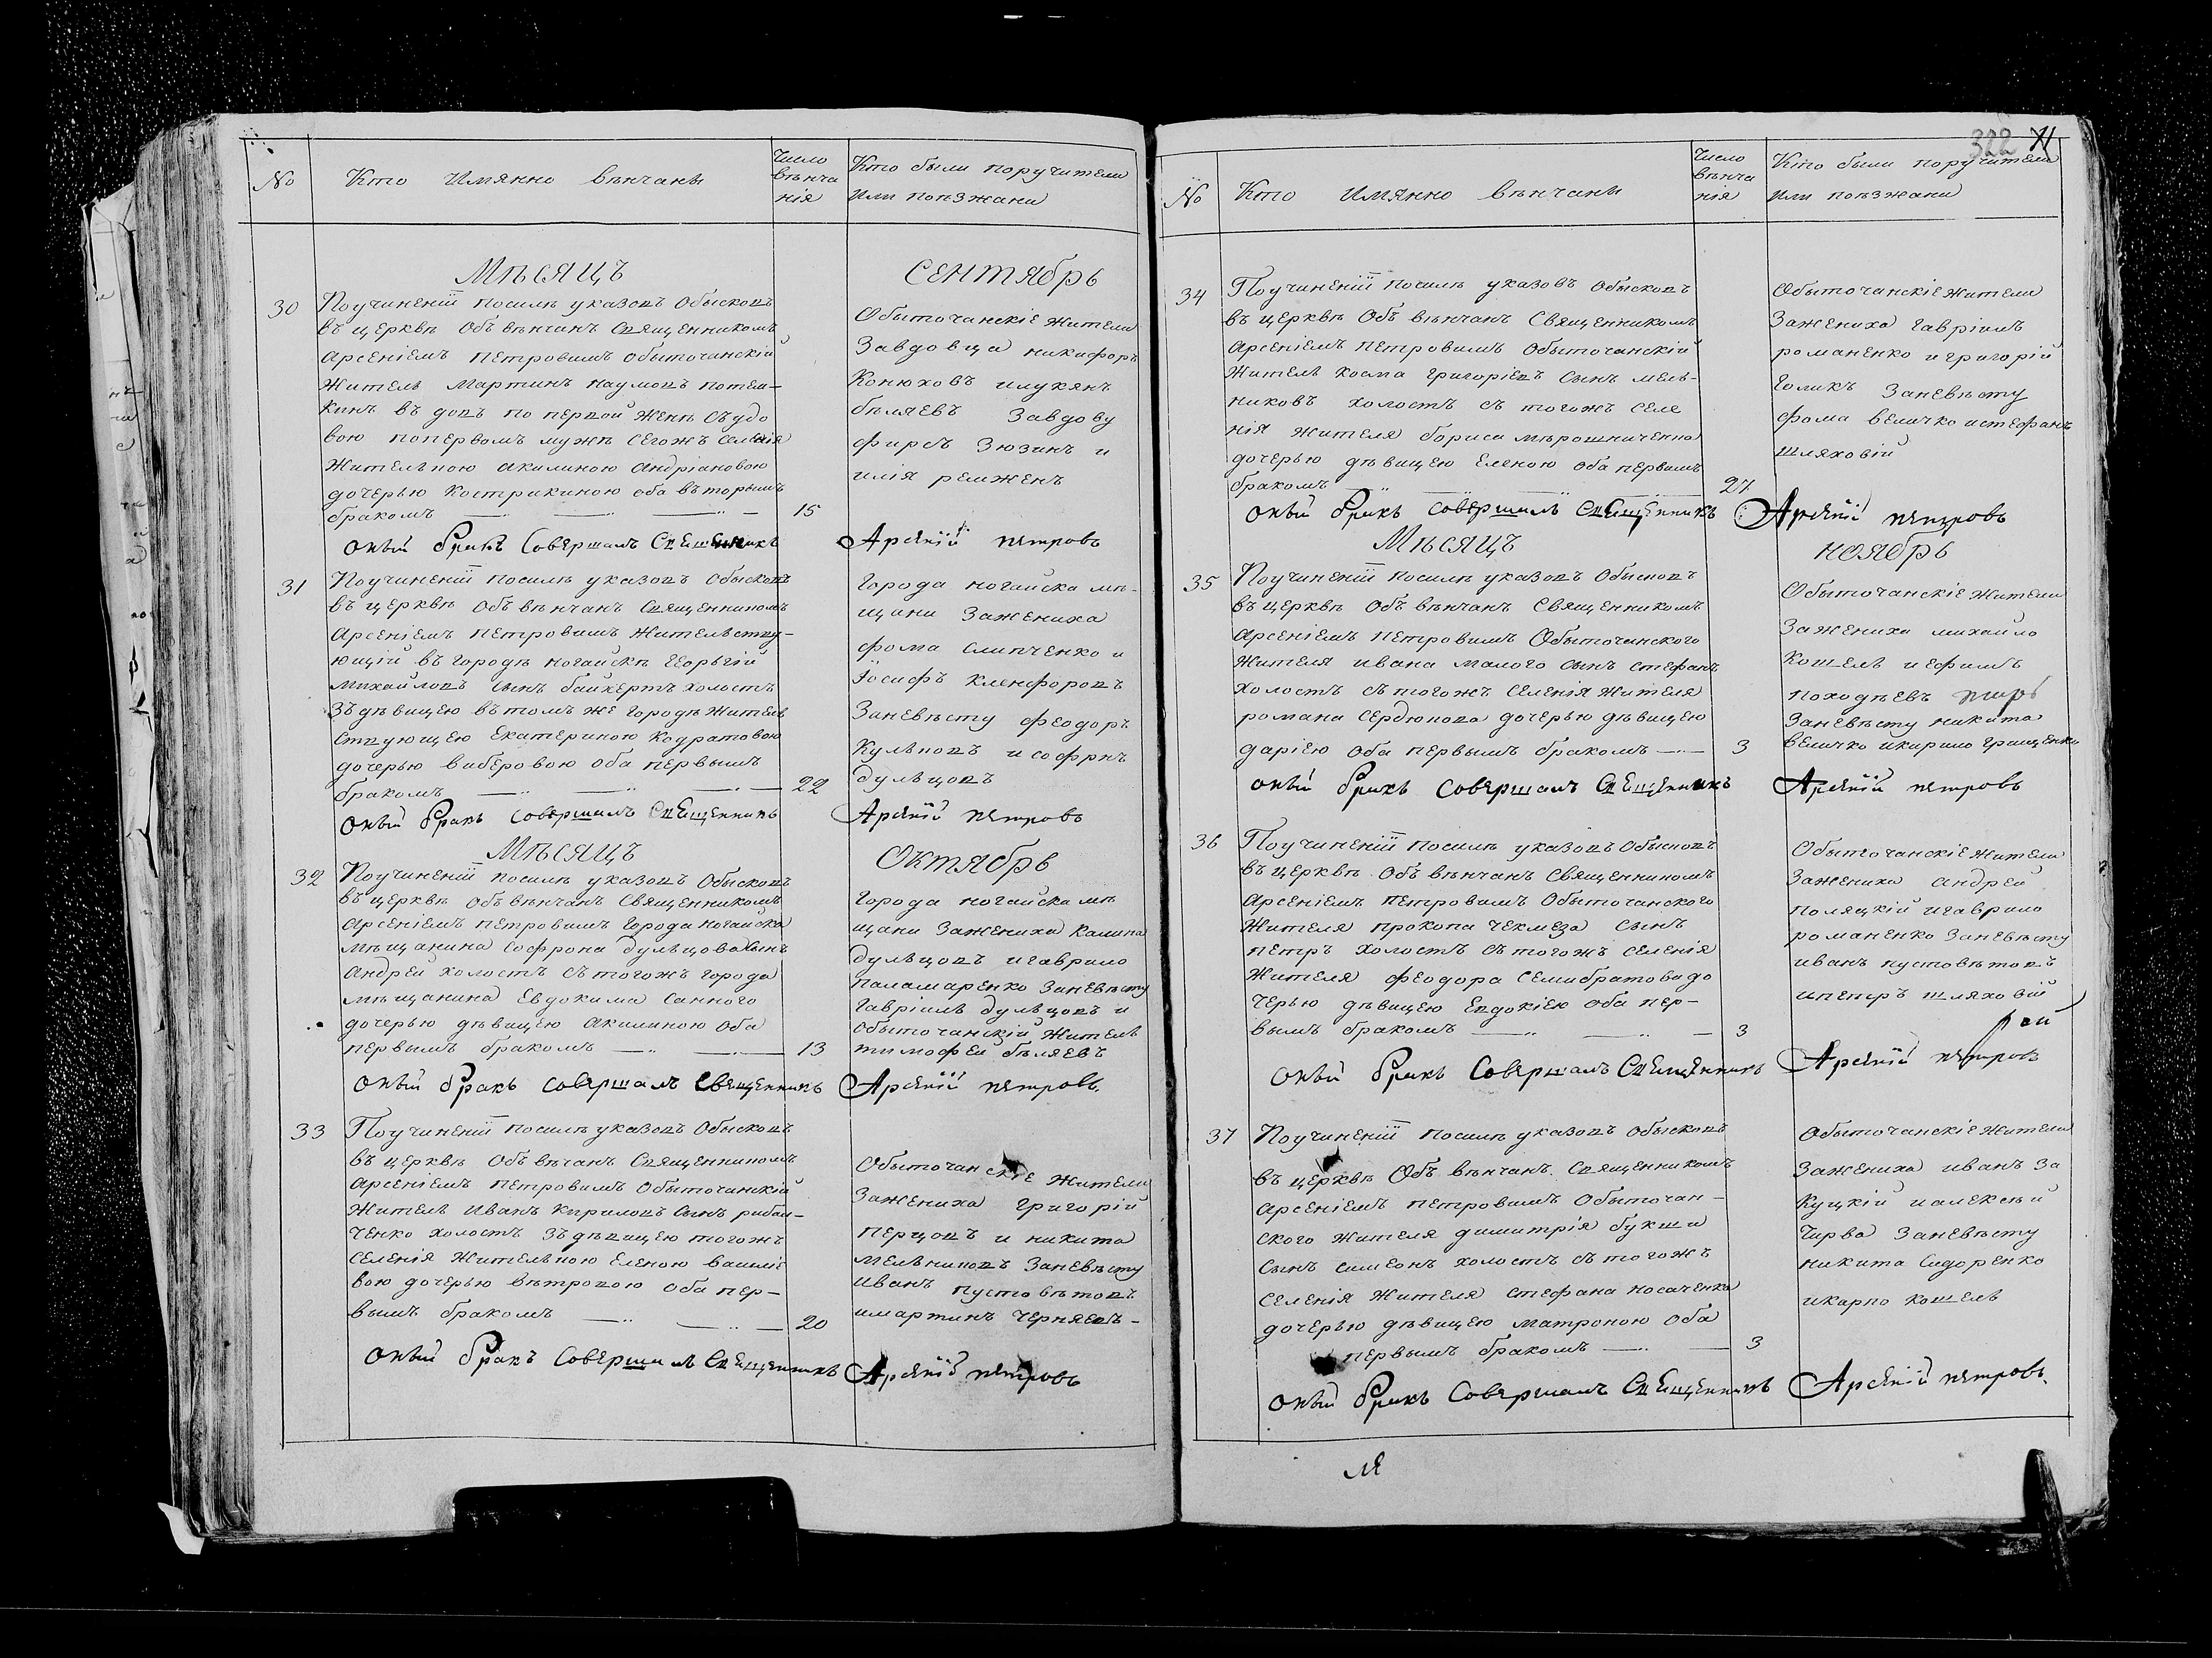 №
Кто Имянно вѣнчаны
Число
вѣнча
нія
Кто были поручители
или поѣзжани
Мѣсяцъ
Сентябрь
30
Поучиненіи посилѣ указовъ Обысковъ
въ церквѣ Объ вѣнчанъ Священникомъ
Арсеніемъ Петровымъ Обыточанскій
Житель Мартинъ Наумовъ Потем-
кинъ въ довъ по первой Женѣ Съ удо
вою попервомъ мужѣ Сегожъ Селенія
Жителькою Акилиною Андріановою
дочерью Кострикиною оба вторымъ
бракомъ
15
Обыточанскіе Жители
Завдовца Никифоръ
Конюховъ и Лукянъ
бѣляевъ Завдову
Фирсъ Зюзинъ и
Илія
Оный бракъ Совершилъ Священникъ Арсеній Петровъ
31
Поучиненіи посилѣ указовъ Обысковъ
въ церквѣ Объ вѣнчанъ Священникомъ
Арсеніемъ Петровымъ Жительству-
ющій въ городѣ Ногайскѣ Георьгій
Михайловъ сынъ байкертъ холостъ
Зъ дѣвицею въ томъ же городѣ Житель
ствующею Екатериною Кодратовою
дочерью виберовою оба первымъ
бракомъ
22
Города Ногайска мѣ-
щани Зажениха
Фома Слипченко и
Іосифъ Кленфоровъ
Заневѣсту Феодоръ
Кульповъ и Софрнъ
дульцовъ
Оный бракъ Совершилъ Священникъ Арсеній Петровъ
Мѣсяцъ
Октябрь
32
Поучиненіи посилѣ указовъ Обысковъ
въ церквѣ Объ вѣнчанъ Священникомъ
Арсеніемъ Петровымъ Города Ногайска
мѣщанина Софрона дульцова Сынъ
Андрей холостъ Стогожъ города
мѣщанина Евдокима Санного
дочерью дѣвицею Акилиною оба
первымъ бракомъ
13
Города Ногайска мѣ
щани Зажениха Калина
дульцовъ и гаврило
Паламаренко Заневѣсту
Гавріилъ дульцовъ и
Обыточанскій Житель
Тимофей бѣляевъ
Оный бракъ Совершилъ Священникъ Арсеній Петровъ.
33
Поучиненіи посилѣ указовъ Обысковъ
въ церквѣ Объ вѣчанъ Священникомъ
Арсеніемъ Петровымъ Обыточанскій
Житель Иванъ Кириловъ Сынъ рибал-
ченко холостъ Зъ дѣвицею тогожъ
Селенія Жителькою Еленою василіе
вою дочерью вѣтровою оба пер-
вымъ бракомъ
20
Обыточанскіе Жители
Зажениха Григорій
Перцовъ и никита
Мельниковъ Заневѣсту
Иванъ Пустовѣтовъ
и мартинъ черняевъ-
Оный бракъ Совершилъ Священникъ Арсеній Петровъ
322
11
№
Кто Имянно вѣнчаны
Число
вѣнча
нія
Кто были поручители
или поѣзжани
34
Поучиненіи посилѣ указовъ Обысковъ
въ церквѣ Объ вѣнчанъ Священникомъ
Арсеніемъ Петровымъ Обыточанскій
Житель Косма Григоріевъ Сынъ мель-
никовъ холостъ Стогожъ Селе
нія Жителя бориса мѣрошниченка
дочерью дѣвицею Еленою оба первымъ
бракомъ
27
Обыточанскіе Жители
Зажениха Гавріилъ
романенко и григорій
Голикъ Заневѣсту
Фома величко и стефанъ
шляховій
Оный бракъ Совершилъ Священникъ Арсеній Петровъ
Мѣсяцъ
Ноябрь
35
Поучиненіи посилѣ указовъ Обысковъ
въ церквѣ Объ вѣнчанъ Священникомъ
Арсеніемъ Петровымъ Обыточанского
Жителя ивана малого сынъ стефанъ
холостъ Стогожъ Селенія Жителя
романа Сердюкова дочерью дѣвицею
даріею оба первымъ бракомъ
3
Обыточанскіе Жители
Зажениха михайло
Кошель и ефимъ
Походѣевъ
Заневѣсту никита
величко и кирило грищенко
Оный бракъ Совершилъ Священникъ Арсеній Петровъ
36
Поучиненіи посилѣ указовъ Обысковъ
въ церквѣ Объ вѣнчанъ Священникомъ
Арсеніемъ Петровымъ Обыточанского
Жителя прокопа чекмеза Сынъ
петръ холостъ Стогожъ Селенія
Жителя феодора Семибратова до
черью дѣвицею Евдокіею оба пер-
вымъ бракомъ
3
Обыточанскіе Жители
Зажениха Андрей
Поляцкій и гаврило
романенко Заневѣсту
иванъ пустовѣтовъ
и петръ шляховій
Оный бракъ Совершилъ Священникъ Арсеній Петровъ
37
Поучиненіи посилѣ указовъ Обысковъ
въ церквѣ Объ вѣнчанъ Священникомъ
Арсеніемъ Петровымъ Обыточан-
ского Жителя димитрія букши
Сынъ симеонъ холостъ Стогожъ
Селенія Жителя стефана носаченка
дочерью дѣвицею матроною оба
первымъ бракомъ
3
Обыточанскіе Жители
Зажениха иванъ За
куцкій и алексѣй
Чирва Заневѣсту
никита Сидоренко
и карпо Кошель
Оный бракъ Совершилъ Священникъ Арсеній Петровъ.